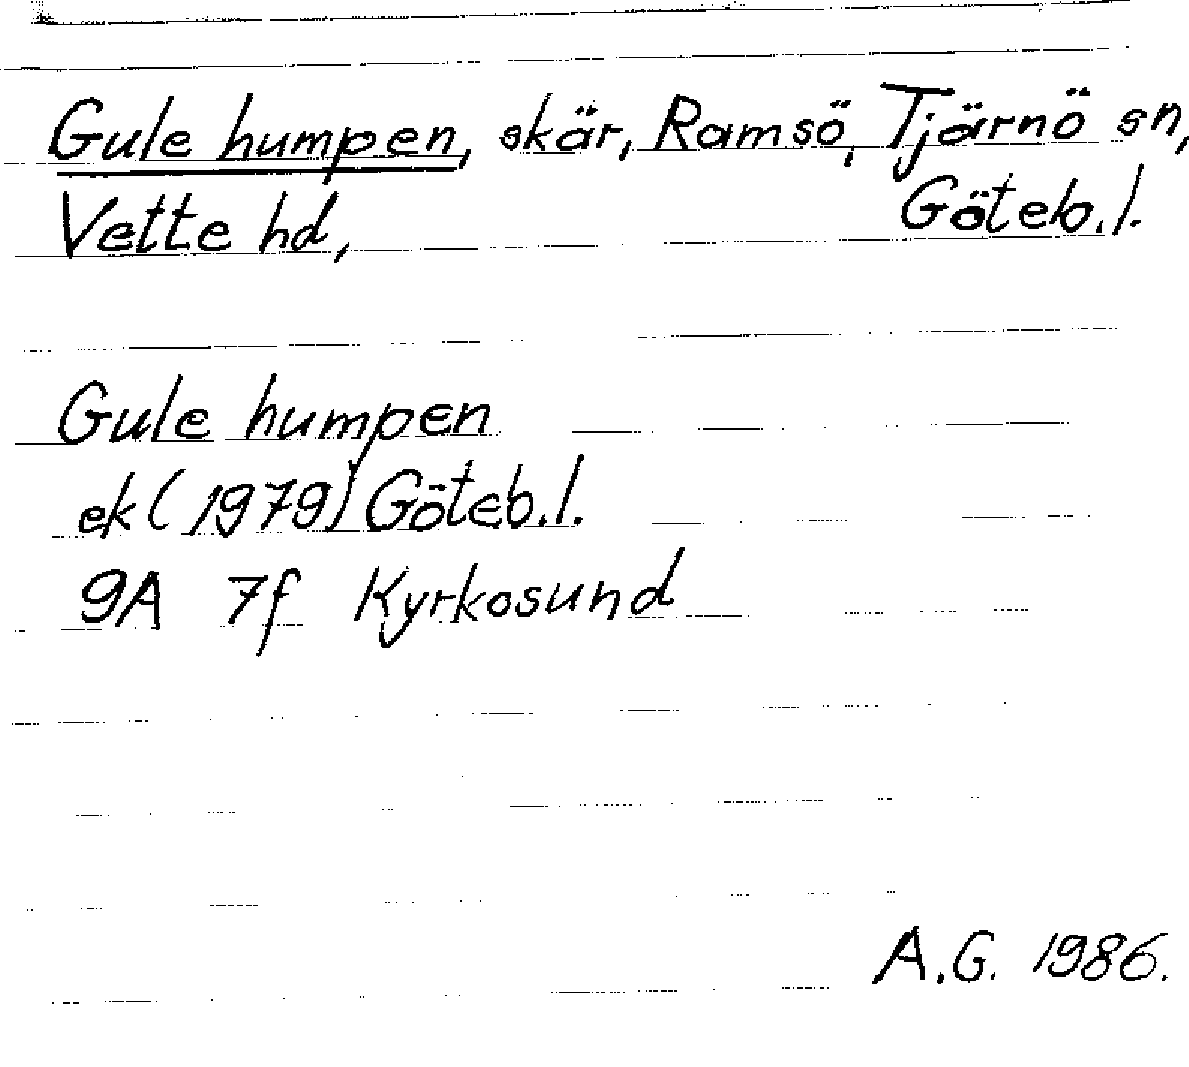 Gule humpen, skär, Ramsö, Tjärnö sn,
Vette hd, Göteb.l.
Gule humpen
ek (1979) Göteb.l.
9A 7f Kyrkosund
A.G. 1986.